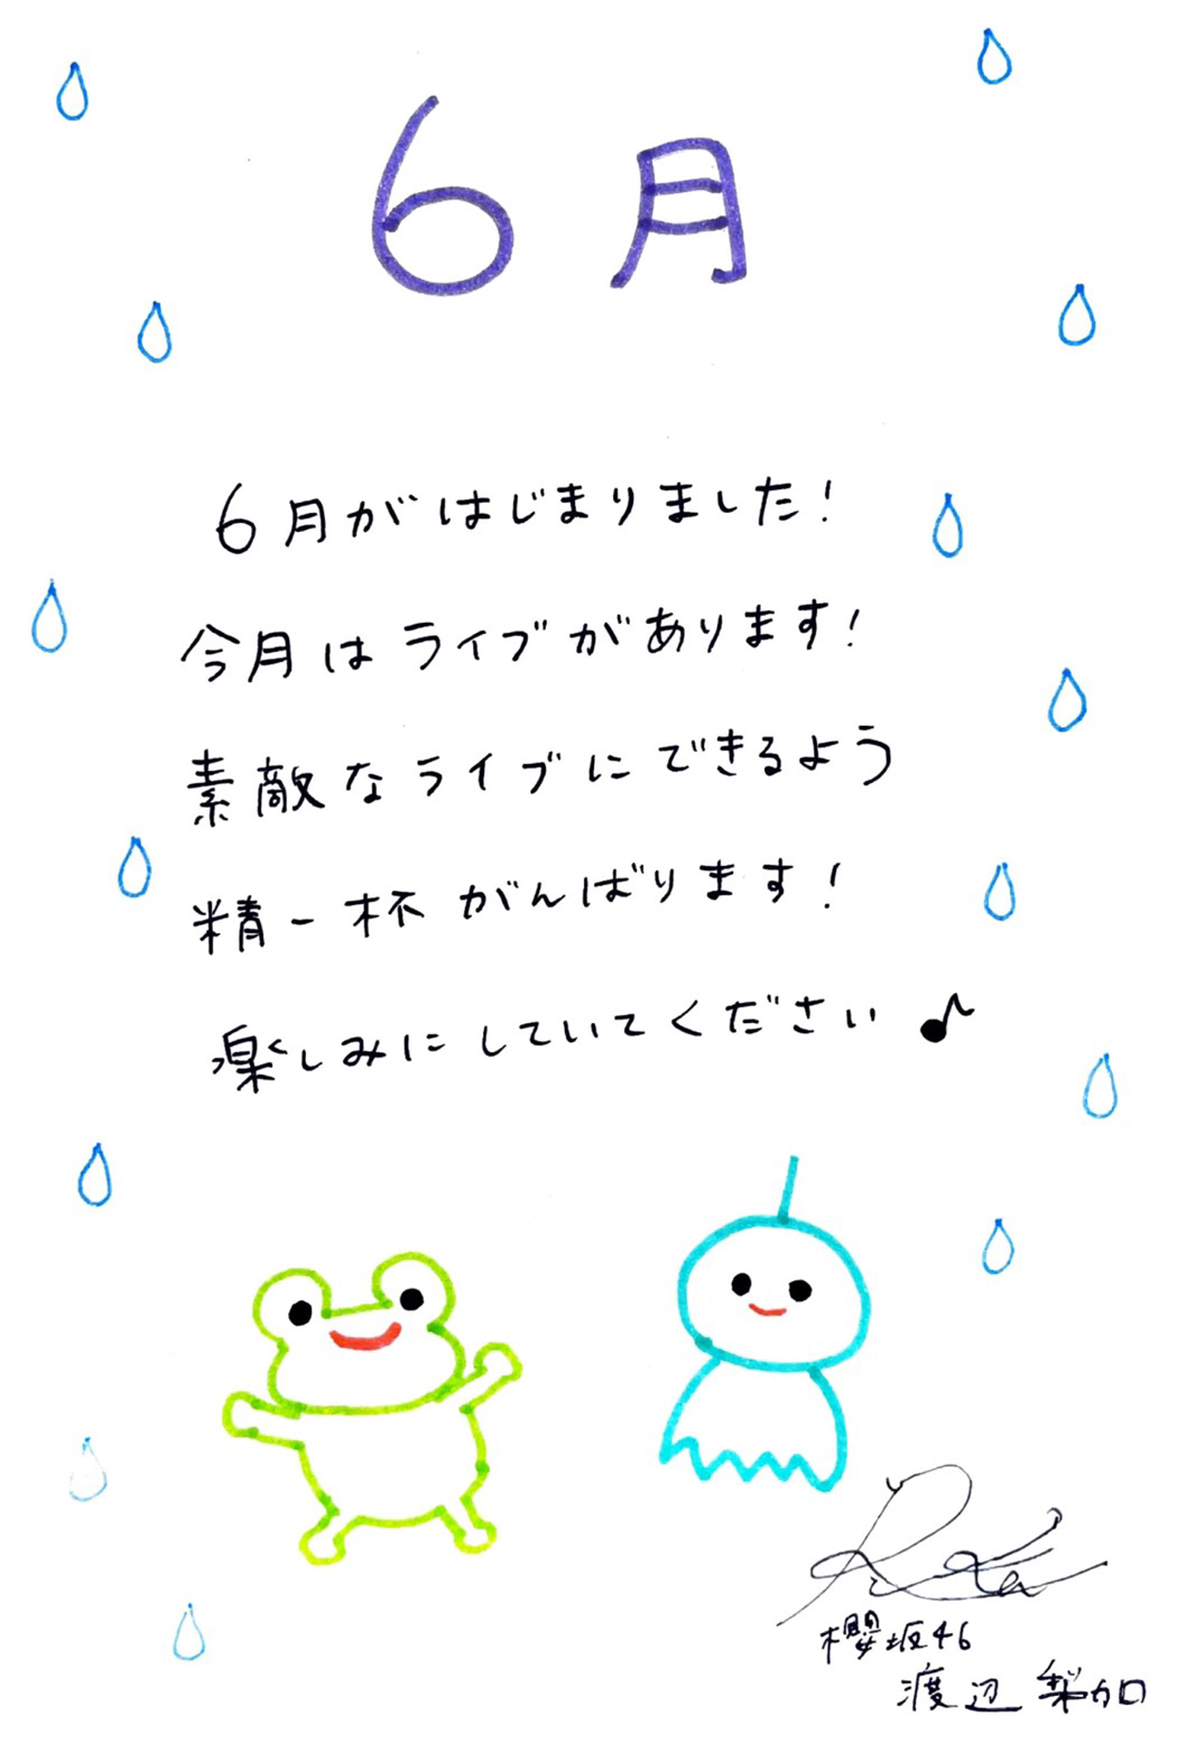 6月
6月がはじまりました!
今月はライブがあります!
素敵なライブにできるよう
精一杯がんばります!
楽しみにしていてください♪
Rika
櫻坂46
渡辺梨加